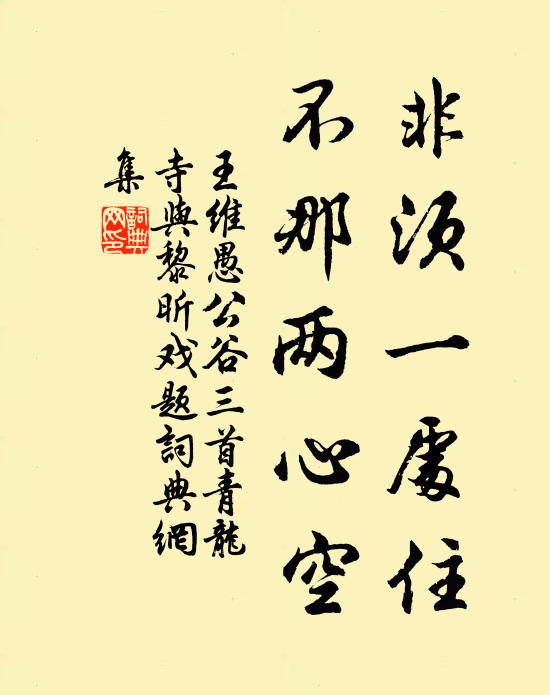 非须一處住
不那两心空
王维愚公谷三首青龍
寺與黎昕戏题詞典網
集
詞典网印